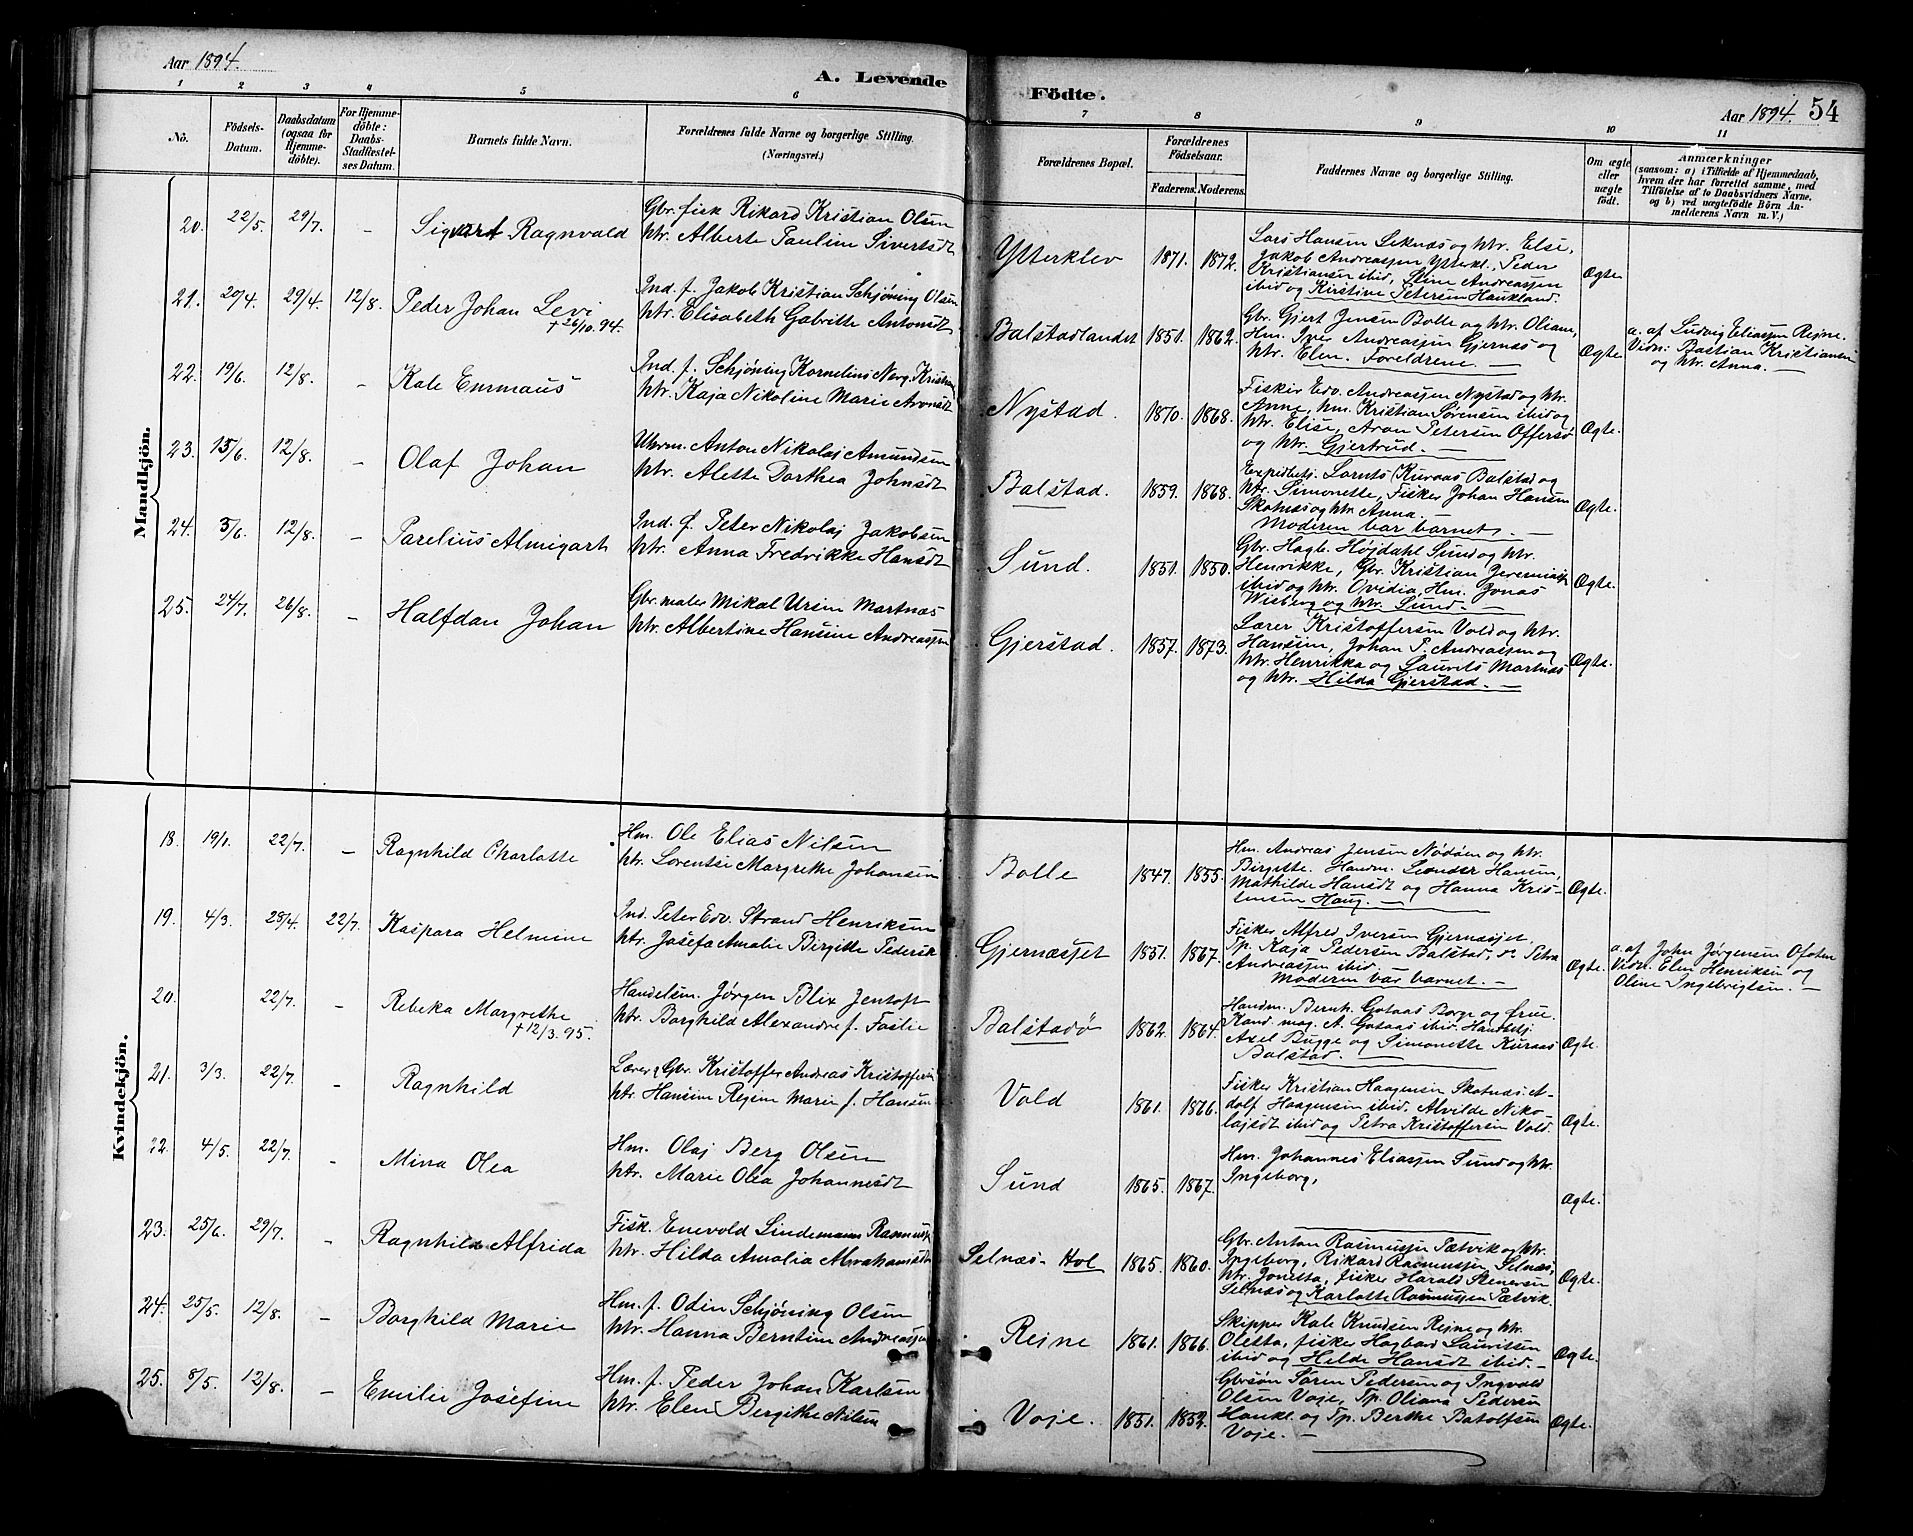 Aar 1894.
A. Levende
1 2 3 4 5 6
No.
Födsels-Datum.
Daabsdatum (ogsaa for Hjemme-döbte).
For Hjemme-döbte: Daabs-Stadfæstel-ses Datum.
Barnets fulde Navn.
Forældrenes fulde Navne og borgerlige Stilling.
(Næringsvei.)
Mandkjön.
20. 22/5. 29/7. - Sigvart Ragnvald
Gbr. fisk Rikard Kristian Olsen
htr. Alberte Pauline Sivertsdt
21. 20/4. 29/4. 12/8. Peder Johan Levi
+26/10.94.
Ind. f. Jakob Kristian Schjöning Olsen
htr. Elisabeth Gabritte Antonsdt
22. 19/6. 12/8. - Kale Emmaus
Ind. f. Schjöning Kornelius Nerg. Kristians
htr. Kaja Nikoline Marie Aronsdt
23. 15/6. 12/8. - Olaf Johan
Uhrm. Anton Nikolaj Amundsen
htr. Alette Dorthea Johnsdt
24. 3/6. 12/8. - Parelius Almigarh
Ind. f. Peter Nikolaj Jakobsen
htr. Anna Fredrikke Hansdt
25. 24/7. 26/8. - Halfdan Johan
Gbr. maler Mikal Ursin Martnæs
htr. Albertine Hansine Andreassen
Kvindekjön.
18. 19/1. 22/7. - Ragnhild Charlotte
Hm. Ole Elias Nilsen
htr. Lorentse Margrethe Johansen
19. 4/3. 23/4. 22/7. Kaspara Helmine
Ind. Peter Edv. Strand Henriksen
htr. Josefa Amalie Birgitte Pedersd
20. 22/7. - Rebeka Margrethe
+12/3.95.
Handelsm. Jørgen Blix Jentoft
htr. Borghild Alexandre f. Faslie
21. 3/3. 22/7. - Ragnhild
Lærer, Gbr. Kristoffer Andreas Kristoffersen
htr. Hansine Regine Marie f. Hansen
22. 4/5. 22/7. - Mina Olea
Hm. Olaj Berg Olsen
htr. Marie Olea Johannesdt
23. 25/6. 29/7. - Ragnhild Alfrida
Fisk. Enevold Lindemann Rasmuss
htr. Hilda Amalia Abrahamsdt
24. 25/5. 12/8. - Borghild Marie
Hm. f. Odin Schjöning Olsen
htr. Hanna Berntine Andreassen
25. 8/5. 12/8. - Emilie Josefine
Hm. f. Peder Johan Karlsen
htr. Elen Bergithe Nilsen
Födte.
Aar 1894. 54
7 8 9 10 11
Forældrenes Bopæl.
Forældrenes Födselsaar.
Faderens. Moderens.
Faddernes Navne og borgerlige Stilling.
Om ægte eller uægte födt.
Anmærkninger
(saasom: a) i Tilfælde af Hjemmedaab,
hvem der har forrettet samme, med
Tilföielse af to Daabsvidners Navne,
og b) ved uægtefödte Börn An-
melderens Navn m. V.)
Ytterklev 1871. 1872.
Lars Hansen Leknæs og htr. Else,
Jakob Andreassen Ytterkl., Peder
Kristiansen ibid, Stine Andreassen
ibid og Kristine Petersen Haukland.
Ægte
Balstadlandet 1851. 1862.
Gbr. Gjert Jensen Bolle og htr. Oliane,
Hm. Iver Andreassen Gjernæs og
htr. Elen. Foreldrene.
Ægte
a. af Ludvig Eliassen Rejne.
Vidn: Bastian Kristiansen
og htr. Anna.
Nystad. 1870. 1868.
Fisker Edv. Andreassen Nystad og htr.
Anne, hm. Kristian Sørensen ibid og
htr. Elise, Aron Petersen Offersø
og htr. Gjertrud.
Ægte.
Balstad. 1859. 1868.
Expedbetj. Lornts Kuraas Balstad og
htr. Simonette, Fisker Johan Hansen
Skotnæs og htr. Anna.
Moderen bar barnet.
Ægte.
Sund. 1851. 1850.
Gbr. Hagb. Højdahl Sund og htr.
Henrikke, Gbr. Kristian Jeremias
ibid og htr. Ovidia, Hm. Jonas
Wieberg og htr. Sund.
Ægte.
Gjerstad. 1857. 1873.
Lærer Kristoffersen Vold og htr.
Hansine, Johan P. Andreassen og
htr. Henrikka og Laurits Martnæs
og htr. Hilda Gjerstad.
Ægte.
Bolle 1847. 1855.
Hm. Andreas Jensen Nödöen og htr.
Birgitte. Handm. Leonder Hansen,
Mathilde Hansdt og Hanna Kris-
tensen Haug.
Ægte.
Gjernæsjet 1851. 1867.
Fisker Alfred Iversen Gjernæsjet.
Tp. Kaja Pedersen Balstad, do Petra
Andreassen ibid.
Moderen bar barnet.
Ægte.
a. af John Jørgensen Ofoten
Vidn. Elen Henriksen og
Oline Ingebrigtsen.
Balstadø 1862. 1864.
Handm. Bernh. Gotaas Borge og frue.
Kand. mag. A. Gotaas ibid. Handelsbj
Axel Bugge og Simonette Kuraas
Balstad.
Ægte.
Vold 1861. 1866.
Fisker Kristian Haagensen Skotnæs. A-
dolf Haagensen ibid. Alvilde Niko-
lajsdt ibid og Petra Kristoffersen Vold.
Ægte.
Sund 1865. 1867.
Hm. Johannes Eliassen Sund og htr.
Ingeborg,
Ægte.
Selnæs- Hol 1865. 1860.
Gbr. Anton Rasmussen Pætvik og htr.
Ingeborg, Rikard Rasmussen Selnæs,
htr. Jonetta, fisker Harald Stenersen
Selnæs og Karlotte Rasmussen Pætvik.
Ægte.
Rejne 1861. 1866.
Skipper Kale Knudsen Rejne og htr.
Oletta, fisker Hagbard Lauritsen
ibid og Helde Hansdt ibid.
Ægte.
Voje. 1851. 1852.
Gbrsön Sören Pedersen og Ingvald
Olsen Voje, Tp. Oliana Pedersen
Haukl. og Tp. Berthe Batolfsen
Voje.
Ægte.